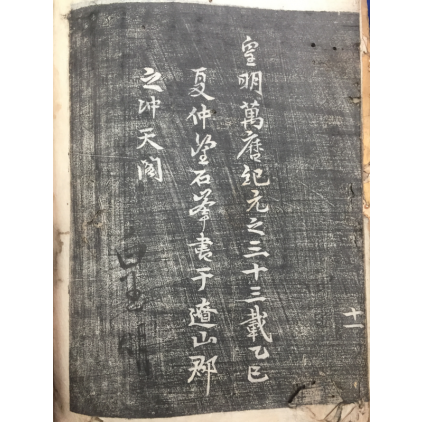 皇明萬曆紀元之三十三載乙巳
夏仲望石峯書于遼山郡
之冲天閣
十一